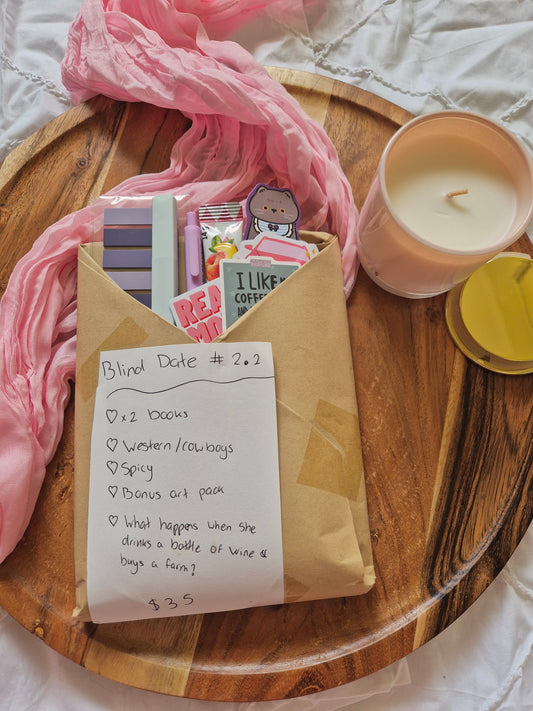 I LIKE
COFFEE
AND
REA
MO
Blind Date # 2.2
x2 books
Western/cowboys
Spicy
Bonus art pack
What happens when she
drinks a bottle of wine &
buys a farm?
$35